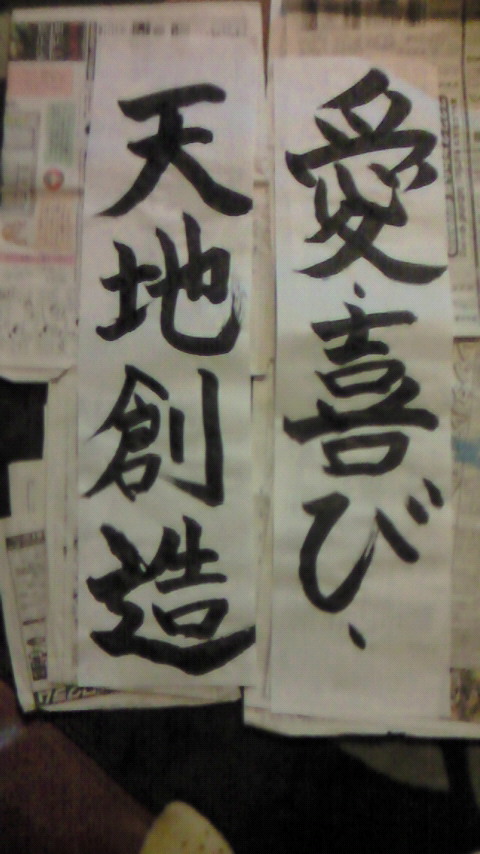 愛・喜び、
天地創造